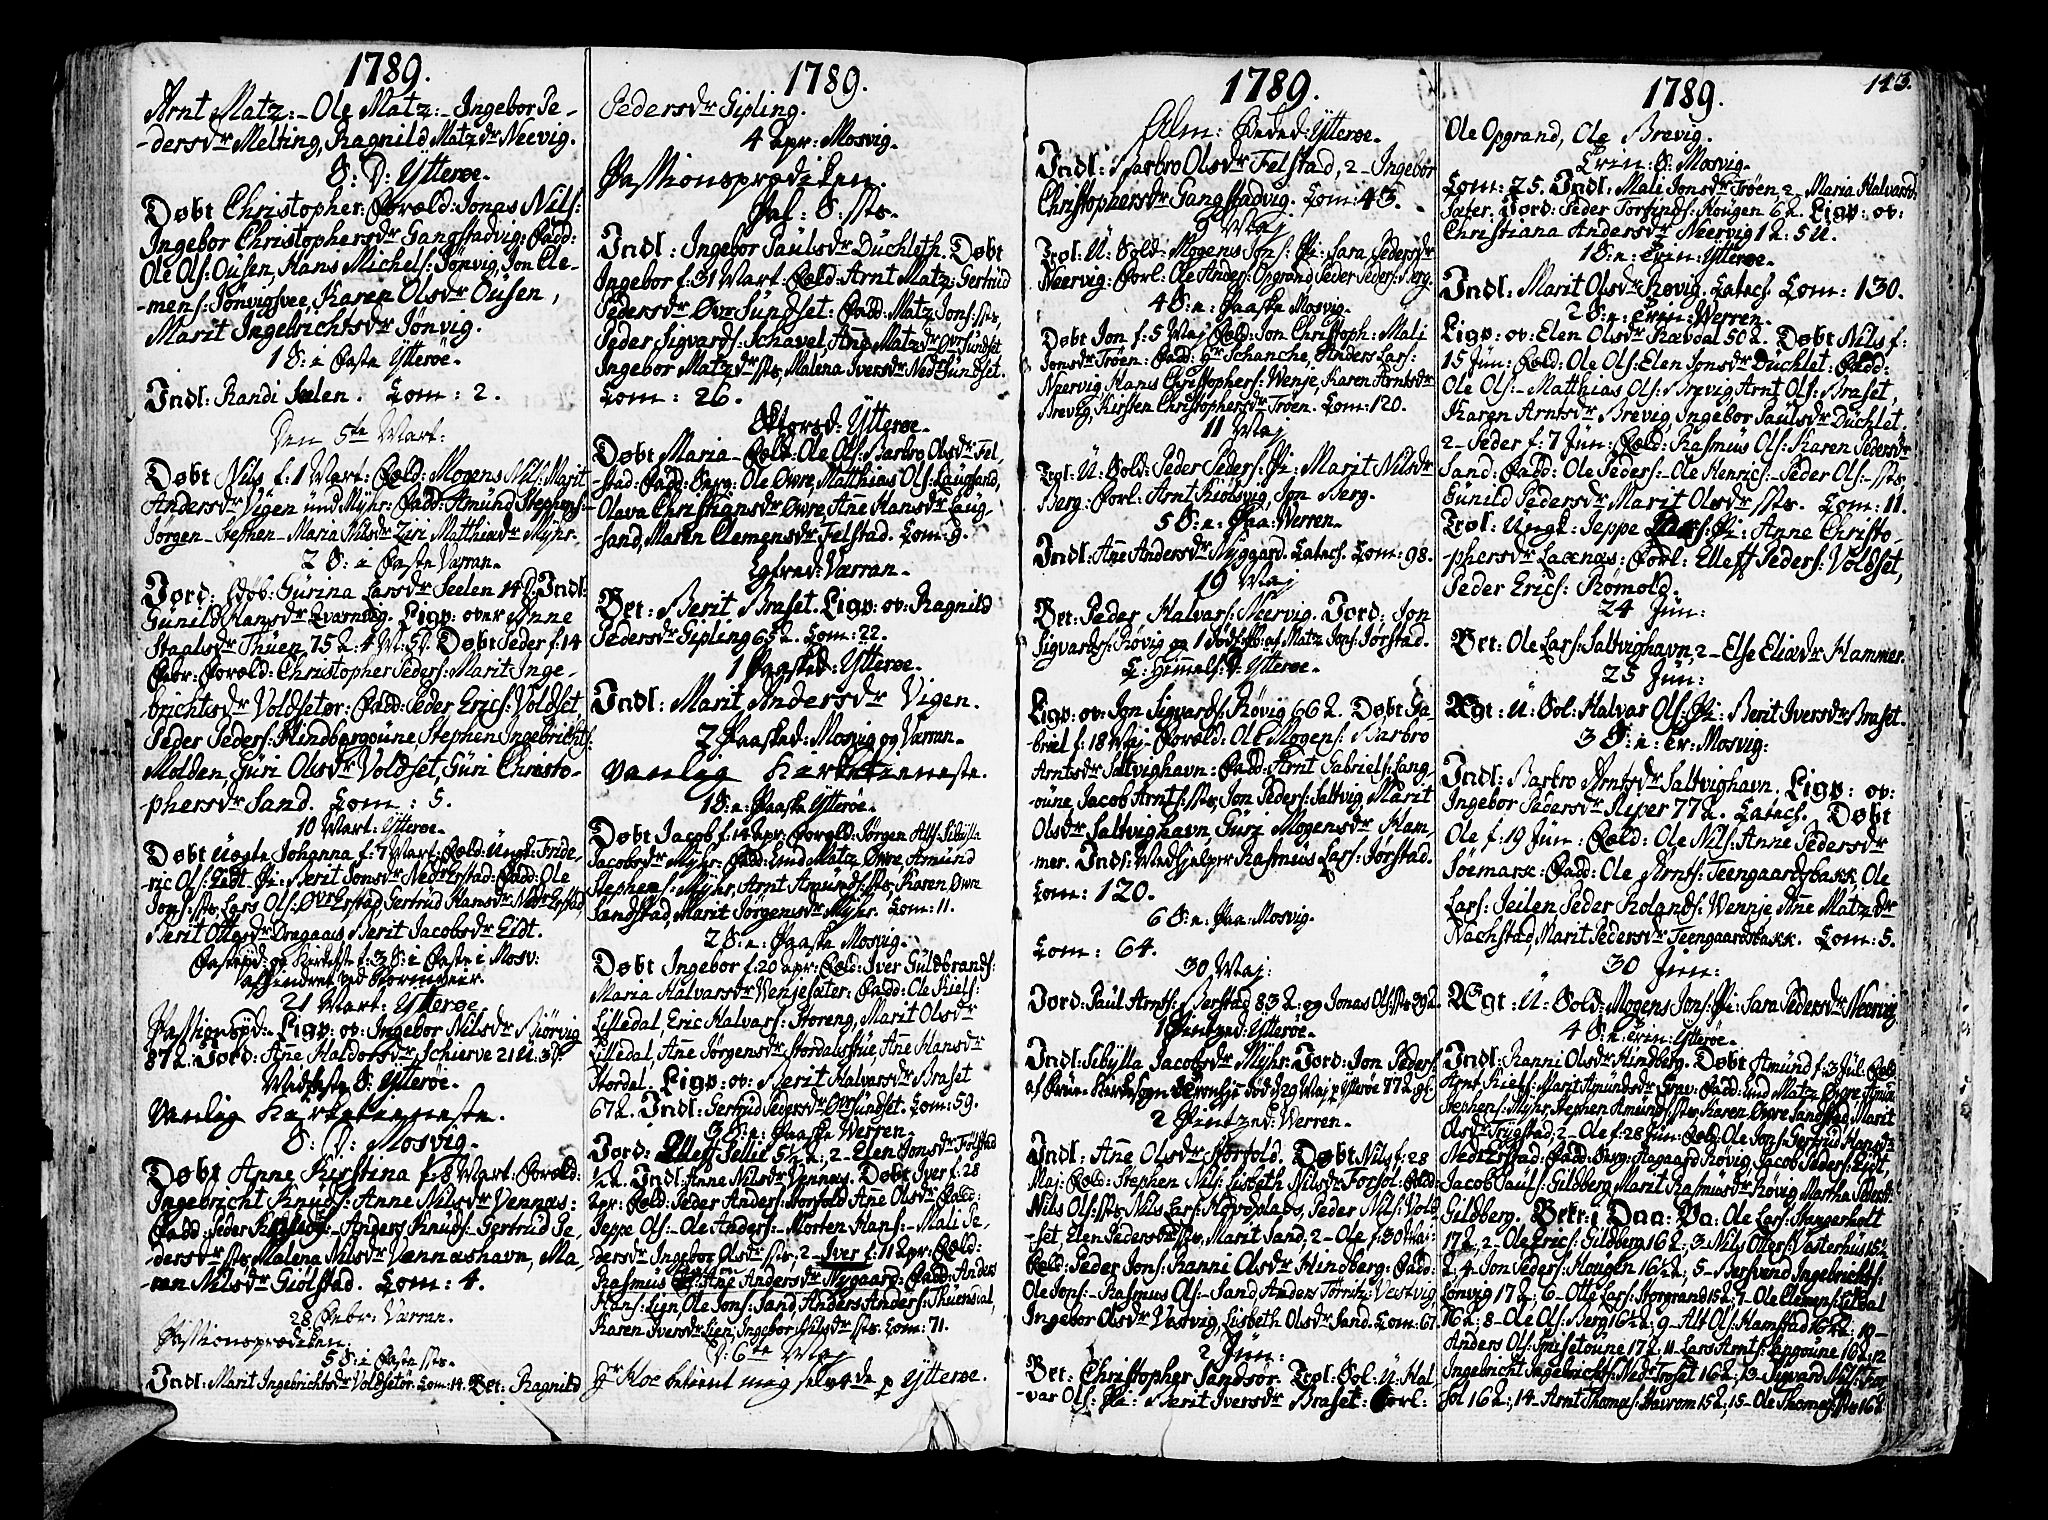 1789.
Arnt Matz: – Ole Matz: – Ingebor Pe-
-dersdr Melting, Ragnild Matzdr Neevig.
S: D: Ytterøe.
Døbt Christopher: Foræld: Jonas Nils:
Ingebor Christophersdr Gangstadvig: Fadd:
Ole Ols: Ousen, Hans Michels: Jønvig, Jon Cle-
-mens: Jønvigsvee, Karen Olsdr Ousen,
Marit Ingebrichtsdr Jønvig.
1 S: i Faste Ytterøe.
Indl: Randi Seelen. Com: 2.
Den 5te Mart:
Døbt Nils f: 1 Mart: Foræld: Mogens Nils: Marit
Andersdr Vigen und Myhr: Fadd: Amund Stephens:
Jørgen – Stephen – Maria Nilsdr Ziri Matthiedr Myhr.
2 S: i Faste Værran.
Jord: Døb: Gurina Larsdr Seelen 14 D: Indl:
Gunild Hansdr Qvarndig. Ligp: over Anne
Staalsdr Thuen 75 2: 4 M: 5 D: Døbt Peder f: 14
Febr: Foræld: Christopher Peders: Marit Inge-
brichtsdr Voldsetør: Fadd: Peder Erics: Voldset
Peder Peders: Hindbergoune, Stephen Ingebrichts:
Molden, Guri Olsdr Voldset, Guri Christo-
-phersdr Sand. Com: 5.
10 Mart: Ytterøe.
Døbt Uægte Johanna f: 7 Mart: Fæld: Ungk: Fride-
ric Ols: Eidt Pi: Berit Jonsdr Nedrerstad: Fadd: Ole
Jons: sts, Lars Ols: Øvrerstad Gertrud Hansdr Nedrerstad,
Berit Ottesdr Dregaas Berit Jacobsdr Eidt.
Fastepd: og Kirketste f: 3 S: i Faste i Mosv:
Vaihindret ved Stormveir.
21 Mart: Ytterøe.
Passionspd: Ligp: ov: Ingebor Nilsdr Biørvig
87 2: Jord: Anne Haldorsdr Schierve 21 U: 3 D
Midfaste S: Ytterøe.
Vanlig Kirketienneste.
S: D: Mosvig.
Døbt Anne Kirstina f: 8 Mart: Foræld:
Ingebricht Knuds: Anne Nilsdr Vennæs:
Fadd: Peder – Anders Knuds: Gertrud Pe-
dersdr sts, Malena Nilsdr Vænnæshavn, Ma-
ren Nilsdr Giølstad. Com: 4.
28 Febr: Værran.
Passionsprædiken.
5 S: i Faste sts.
Indl: Marit Ingebrichtsdr Voldsetør. Com: 14. Bet: Ragnild
1789.
Pedersdr Sipling.
4 Apr: Mosvig.
Passionsprædiken.
Paf: S: sts.
Indl: Ingebor Paulsdr Duchleth. Døbt
Ingebor f: 31 Mart: Fæld: Arnt Matz: Gertrud
Pedersdr Øvrsundset: Fadd: Matz Jons: sts,
Peder Sigvards: Schavel, Anne Matzdr Øvrsundset
Ingebor Matzdr sts, Malena Iversdr Nedrsundset.
Com: 26.
Skiersd: Ytterøe.
Døbt Maria – Fæld: Ole Ols: Barbro Olsdr Fel-
stad: Fadd: Serg: Ole Øvre, Matthias Ols: Laugsand,
Olava Christiansdr Øvre, Anne Hansdr Laug-
sand, Maren Clemensdr Felstad. Com: 9.
Lgfred: Værran.
Bet: Berit Braset. Ligp: ov: Ragnild
Pedersdr Sipling 65 2. Com: 22.
1 Paasked: Ytterøe.
Indl: Marit Andersdr Vigen.
2 Paasked: Mosvig og Værran.
Vanlig Kirketienneste.
1 S: e: Paaske Ytterøe.
Døbt Jacob f: 14 Apr: Foræld: Jørgen Alts: Sibylla
Jacobsdr Myhr: Fadd: Lund Matz Øvre, Amund
Stephens: Myhr, Arnt Amunds: sts, Karen Øvre
Sandstad, Marit Jørgensdr Myhr. Com: 11.
2 S: e: Paaske Mosvig.
Døbt Ingebor f: 20 Apr: Fæld: Iver Guldbrands:
Maria Halvarsdr Venjesæter: Fadd: Ole Kiels:
Lilledal, Eric Halvars: Storeng, Marit Olsdr
Lilledal, Anne Jørgensdr Stordalsstue, Anne Hansdr
Stordal. Ligp: ov: Berit Halvarsdr Braset
67 2. Indl: Gertrud Pedersdr Øvrsundset. Com: 59.
3 S: e: Paaske Werren.
Jord: Elleff Sellie 5½ 2; 2 – Elen Jonsdr Følstad
½ 2. Indl: Anne Nilsdr Vennæs. Døbt Iver f: 28
Apr: Fæld: Peder Anders: Storfold Ane Olsdr Fadd:
Jeppe Ols: – Ole Anders: – Morten Hans: – Mali Pe-
dersdr Ingebor Olsdr sts; 2 – Iver f: 11 Apr: Fæld:
Rasmus Anne Andersdr Nygaard: Fadd: Anders
Hans: Lien, Ole Jons: Sand, Anders Anders: Thuensdal,
Karen Iversdr Lien, Ingebor Nilsdr sts. Com: 71.
D: 6te Maj
Hr Koc betient meg selv 4de p Ytterøe.
1789.
Alm: Beded: Ytterøe.
Indl: Barbro Olsdr Felstad, 2 – Ingebor
Christophersdr Gangstadvig. Com: 43.
9 Maj
Trol: U: Sold: Mogens Jons: Pi: Sara Pedersdr
Neervig: Forl: Ole Anders: Opgrand, Peder Peders: Berg.
4 S: e: Paaske Mosvig.
Døbt Jon f: 5 Maj Fæld: Jon Christoph: Mali
Jonsdr Trøen: Fadd: Hr Schanche, Anders Lars:
Neervig, Hans Christophers: Wenje, Karen Arntsdr
Brevig, Kirsten Christophersdr Trøen. Com: 120.
11 Maj
Trol: U: Sold: Peder Peders: Pi: Marit Nilsdr
Berg: Forl: Arnt Kiøbsvig, Jon Berg.
5 S: e: Paa: Werren.
Indl: Anne Andersdr Nyggard. Catech. Com: 98.
19 Maj
Bet: Peder Halvars: Neervig. Jord: Jon
Sigvards: Røvig og 1 Dødf: af Matz Jons: Jørstad.
C: Himmels: D: Ytterøe.
Ligp: ov: Jon Sigvards: Røvig 66 2. Døbt Ga-
briel f: 18 Maj: Foræld: Ole Mogens: Barbro
Arntsdr Saltvighavn: Fadd: Arnt Gabriels: Lang-
oune, Jacob Arnts: sts, Jon Peders: Saltvig Marit
Olsdr Saltvighavn, Guri Mogensdr Ham-
mer. Indl: Medhjelper Rasmus Lars: Jørstad.
Com: 120.
6 S: e: Paa: Mosvig.
Com: 64.
30 Maj:
Jord: Paul Arnts: Berstad 83 2: og Jonas Ols: sts 39 2
1 Pintzed: Ytterøe.
Indl: Sibylla Jacobsdr Myhr. Jord: Jon Peders:
2 Pintzed: Werren.
Indl: Anne Olsdr Storfold. Døbt Nils f: 28
Maj: Fæld: Stephen Nils: Lisbeth Nilsdr Forsol: Fadd:
Nils Ols: sts Nils Lars: Hovsplads, Peder Nils: Vold-
-set, Elen Pedersdr sts, Marit Sand; 2 – Ole f: 30 Mai:
Fæld: Peder Jons: Ranni Olsdr Hindberg: Fadd:
Ole Jons: – Rasmus Ols: – Sand, Anders Tørris: Vestvig,
Ingebor Olsdr Vestvig, Lisbeth Olsdr Sand. Com: 67
2 Jun:
Bet: Christopher Sandsör. Trol: Sol: U: Hal-
-var Ols: Pi: Berit Iversdr Braset: Forl:
1789.
143.
Ole Opgrand, Ole Brevig.
Trin: S: Mosvig.
Com: 25. Indl: Mali Jonsdr Trøen, 2 – Maria Halvarsd
Sæter. Jord: Peder Torfinds: Hougen 62. Ligp: ov:
Christiana Andersdr Neervig 1 2: 5 U.
1 S: e: Trin: Ytterøe.
Indl: Marit Olsdr Røvig. Catech. Com: 130.
2 S: e: Trin: Werren.
Ligp: ov: Elen Olsdr Rævoal 50 2. Døbt Nils f:
15 Jun: Fæld: Ole Ols: Elen Jonsdr Duchlet: Fadd:
Ole Ols: – Matthias Ols: Brevig, Arnt Ols: Braset,
Karen Arntsdr Brevig, Ingebor Paulsdr Duchlet,
2 – Peder f: 7 Jun: Fæld: Rasmus Ols: Karen Pedersdr
Sand: Fadd: Ole Peders: – Ole Henrics: – Peder Ols: – sts
Gunild Pedersdr Marit Olsdr sts. Com: 11.
Trol: Ungk: Jeppe Lars: Pi: Anne Christo-
phersdr Laxenæs: Forl: Elleff Peders: Voldset,
Peder Erics: Rømold.
24 Jun:
Bet: Ole Lars: Saltvighavn, 2 – Else Eliædr Hammer.
25 Jun:
Ægt: U: Sol: Halvar Ols: Pi: Berit Iversdr Braset.
3 S: e: Tr: Mosvig:
Indl: Barbro Arntsdr Saltvighavn. Ligp: ov:
Ingebor Pedersdr Reper 77 2. Catech. Døbt
Ole f: 19 Jun: Fæld: Ole Nils: Anne Pedersdr
Søemark: Fadd: Ole Arnts: Teengaardsbakk, Ole
Lars: Seilen, Peder Rolands: Wennje, Anne Matzdr
Nachstad, Marit Pedersdr Teengaardsbakk. Com: 5.
30 Jun:
Ægt: U: Sold: Mogens Jons: Pi: Sara Pedersdr Neervig
4 S: e: Trin: Ytterøe.
Indl: Ranni Olsdr Hindberg. Døbt Amund f: 3 Jul: Fæld:
Arnt Kiels: Marit Amundsdr Grev: Fadd: Lund Matz Øvre Amun
Stephens: Myhr, Stephen Amunds: sts, Karen Øvre Sandstad, Marit
Olsdr Trygstad; 2 – Ole f: 28 Jun: Fæld: Ole Jons: Gertrud Hansdr
Nedrerstad: Fadd: Serg: Aagaard Røvig, Jacob Peders: Eidt,
Jacob Pauls: Gildberg, Marit Rasmusdr Røvig Martha Sivertdr
Gildberg. Betr: i Daa: Pa: Ole Lars: Stangerholt
17 2, 2 – Ole Erics: Gildberg 16 2; 3 – Nils Otters: Vesterhus 15½
2, 4 – Jon Peders: Hougen 16½ 2; 5 – Bersvend Ingebrichts:
Lønvig 17 2; 6 – Otte Lars: Storgrand 15 2; 7 – Ole Clemens: Lildal
16 2; 8 – Ole Ols: Berg 16½ 2; 9 – Alt Ols: Hamstad 16½ 2; 10 –
Anders Ols: Grisetoune 17 2; 11 – Lars Arnts: Langoune 16 2; 12
Ingebricht Ingebrichts: Nedrtroset 16 2; 13 – Sigvard Nils: For-
sol 16 2; 14 – Arnt Thomas: Havrom 15 2; 15 – Ole Thomas: sts 16 2